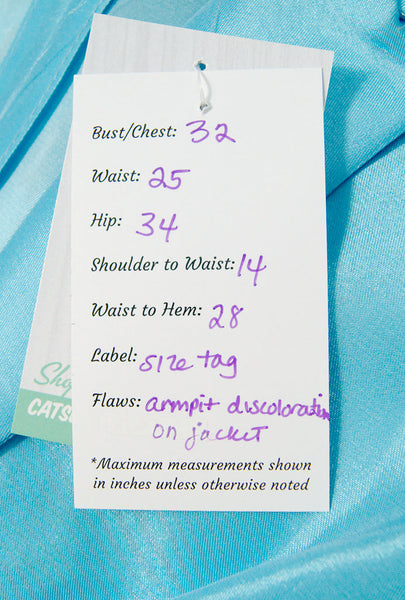 Bust/Chest: 32
Waist: 25
Hip: 34
Shoulder to Waist: 14
Waist to Hem: 28
Label: size tag
Flaws: armpit discoloration
on jacket
*Maximum measurements shown
in inches unless otherwise noted
Sho
CATS